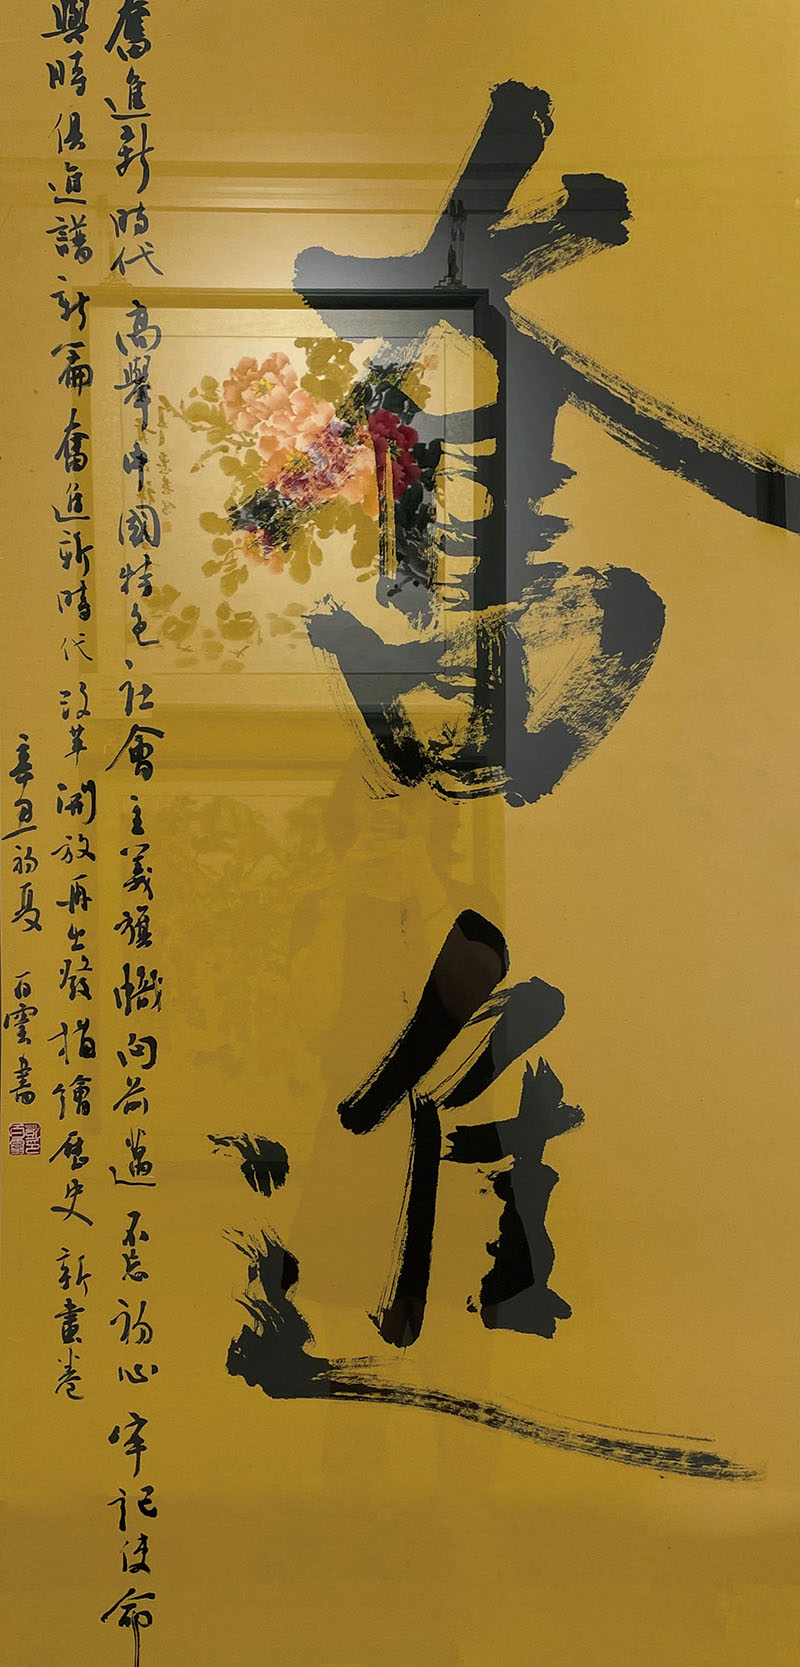 奮進
奮進新時代高舉中國特色社會主義旗幟向前邁不忘初心牢記使命
與時俱進譜新篇奮進新時代改革開放再出發描繪歷史新畫卷
辛丑初夏百雲書